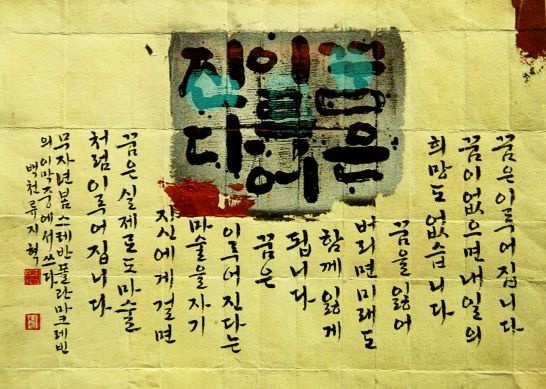 꿈은
이루어
진다
꿈은 이루어집니다
꿈이 없으면 내일의
희망도 없습니다
꿈을 잃어
버리면 미래도
함께 잃게
됩니다
꿈은
이루어진다는
마술을 자기
자신에게 걸면
꿈은 실제로도 마술
처럼 이루어집니다
무자년 봄 스테반 폴란 마크 레빈
의 이막 중에서 쓰다
백천 류지혁